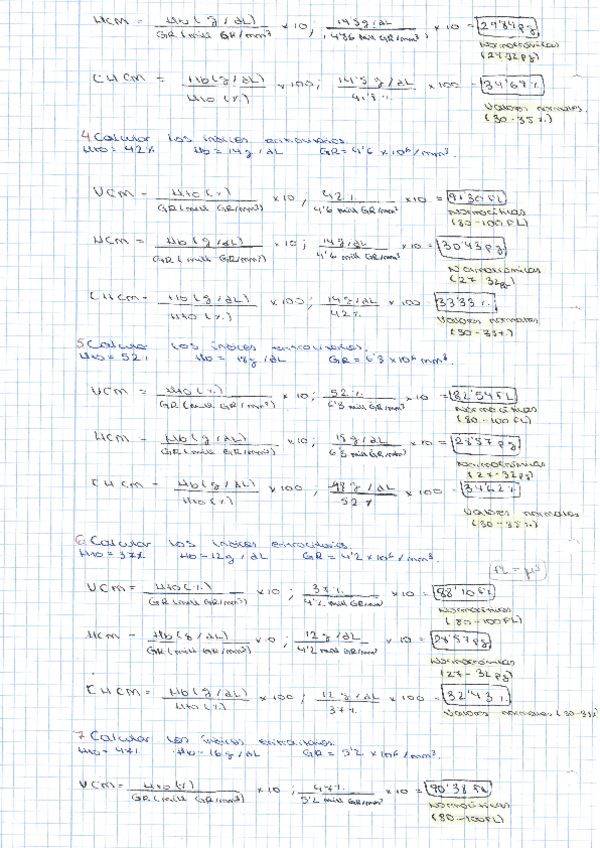 HCM = Hb (g/dL) / GR (mill GR/mm³) × 10; 14'5 g/dL / 4'86 mill GR/mm³ × 10 = 29'84 pg
Normocrómicas
(27-32 pg)
CHCM = Hb (g/dL) / Hto (%) × 100; 14'5 g/dL / % × 100 = 34'67 %
Valores normales
(30-35%)
4 Calcular los índices eritrocitarios
Hto = 42% Hb = 14 g/dL GR = 4'6 × 10⁶/mm³.
VCM = Hto (%) / GR (mill GR/mm³) × 10; 42% / 4'6 mill GR/mm³ × 10 = 91'30 FL
Normocíticas
(80-100 FL)
HCM = Hb (g/dL) / GR (mill GR/mm³) × 10; 14 g/dL / 4'6 mill GR/mm³ × 10 = 30'43 pg
Normocrómicas
(27-32 pg)
CHCM = Hb (g/dL) / Hto (%) × 100; 14 g/dL / 42% × 100 = 33'33 %
Valores normales
(30-35%)
5 Calcular los índices eritrocitarios.
Hto = 52% Hb = 18 g/dL GR = 6'3 × 10⁶ mm³.
VCM = Hto (%) / GR (mill GR/mm³) × 10; 52% / 6'3 mill GR/mm³ × 10 = 82'54 FL
Normocíticas
(80-100 FL)
HCM = Hb (g/dL) / GR (mill GR/mm³) × 10; 18 g/dL / 6'3 mill GR/mm³ × 10 = 28'57 pg
Normocrómicas
(27-32 pg)
CHCM = Hb (g/dL) / Hto (%) × 100; 18 g/dL / 52% × 100 = 34'62 %
Valores normales
(30-35%)
6 Calcular los índices eritrocitarios
Hto = 37% Hb = 12 g/dL GR = 4'2 × 10⁶/mm³
FL = µ³
VCM = Hto (%) / GR (mill GR/mm³) × 10; 37% / mill GR/mm³ × 10 = 88'10 FL
Normocíticas
(80-100 FL)
HCM = Hb (g/dL) / GR (mill GR/mm³) × 10; 12 g/dL / 4'2 mill GR/mm³ × 10 = 28'57 pg
Normocrómicas
(27-32 pg)
CHCM = Hb (g/dL) / Hto (%) × 100; 12 g/dL / 37% × 100 = 32'43 %
Valores normales (30-35%)
7 Calcular los índices eritrocitarios
Hto = 47% Hb = 16 g/dL GR = 5'2 × 10⁶/mm³.
VCM = Hto (%) / GR (mill GR/mm³) × 10; 47% / 5'2 mill GR/mm³ × 10 = 90'38 FL
Normocíticas
(80-100 FL)